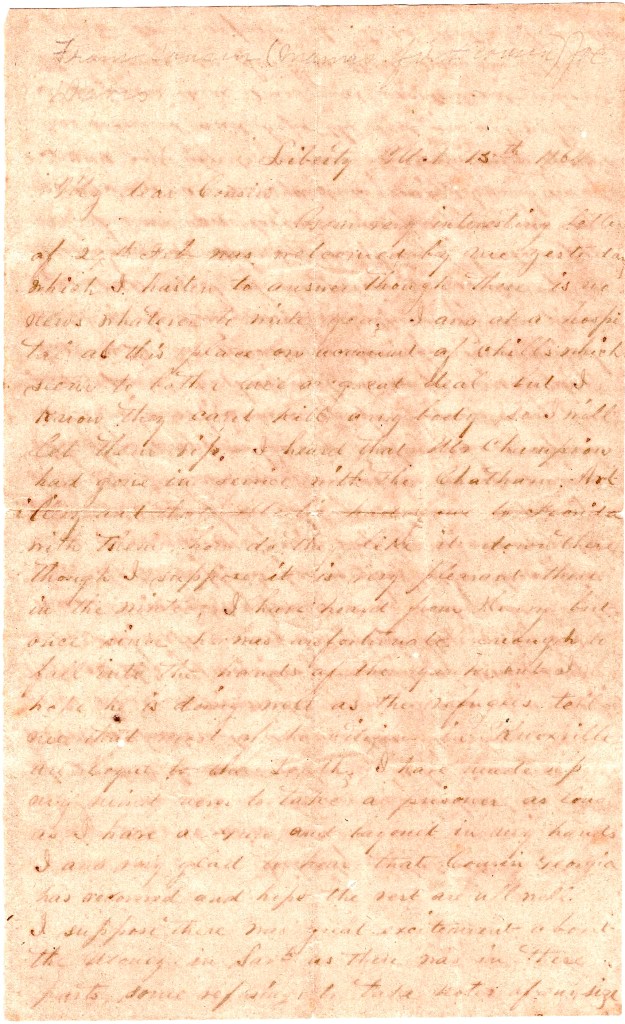 From Cousin (Mama's first cousin) Joe
Liberty Mch 15th 1864
My dear Cousin
Your very interesting letter
of 29th Feb was welcomed by me yesterday
which I hasten to answer though there is no
news whatever to write you. I am at a hospi
tal at this place on account of chills which
seem to bother me a great deal but I
know they cant kill any body so will
let them rip. I heard that Mr Champion
had gone in service with the Chatham Art
illery and that to Florida
with them, how do they like it down there
though I suppose it is very pleasant there
in the winter. I have heard from Henry but
once since he was unfortunate enough to
fall into the hands of the yankees I
hope he is doing well as the refugees tell
me that most of the citizens in Knoxville
are loyal to the South. I have made up
my mind never to be taken a prisoner as long
as I have a gun and bayonet in my hands
I am very glad to hear that Cousin Georgia
has recovered and hope the rest are all well.
I suppose there was great excitement about
the money in Savh as there was in these
parts, some refusing to take notes of any size